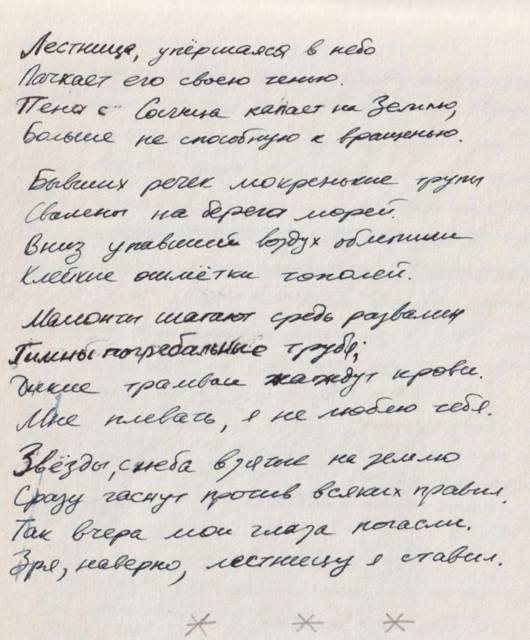 Лестница, упёршаяся в небо
Пачкает его своею тенью.
Пена с Солнца капает на Землю,
Больше не способную к вращенью.
Бывших речек мокренькие трупы
Свалены на берега морей.
Вниз упавший воздух облепили
Клейкие ошмётки тополей.
Мамонты шагают средь развалин
Гимны погребальные трубя;
Дикие трамваи жаждут крови.
Мне плевать, я не люблю тебя.
Звёзды, с неба взятые на землю
Сразу гаснут против всяких правил.
Так вчера мои глаза погасли.
Зря, наверно, лестницу я ставил.
* * *